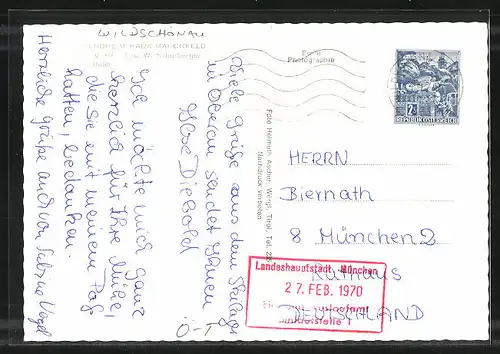 WILDSCHÖNAU
JUGENDHEIM HAUS MARCHFELD
Echte
Photographie
2 S
REPUBLIK ÖSTERREICH
Viele Grüße aus dem
in Oberau sendet Ihnen
Ilose Diebold
Ich möchte mich ganz
herzlich für Ihre Mühe,
die Sie mit meinem Paß
hatten, bedanken.
Herzliche Grüße auch von Sabine Vogel
Foto Hellmuth Ascher, Wörgl, Tirol, Tel. 25
Nachdruck verboten
HERRN
Biernath
8 München 2
Rathaus
DEUTSCHLAND
Landeshauptstadt München
27. FEB. 1970
Ö-T